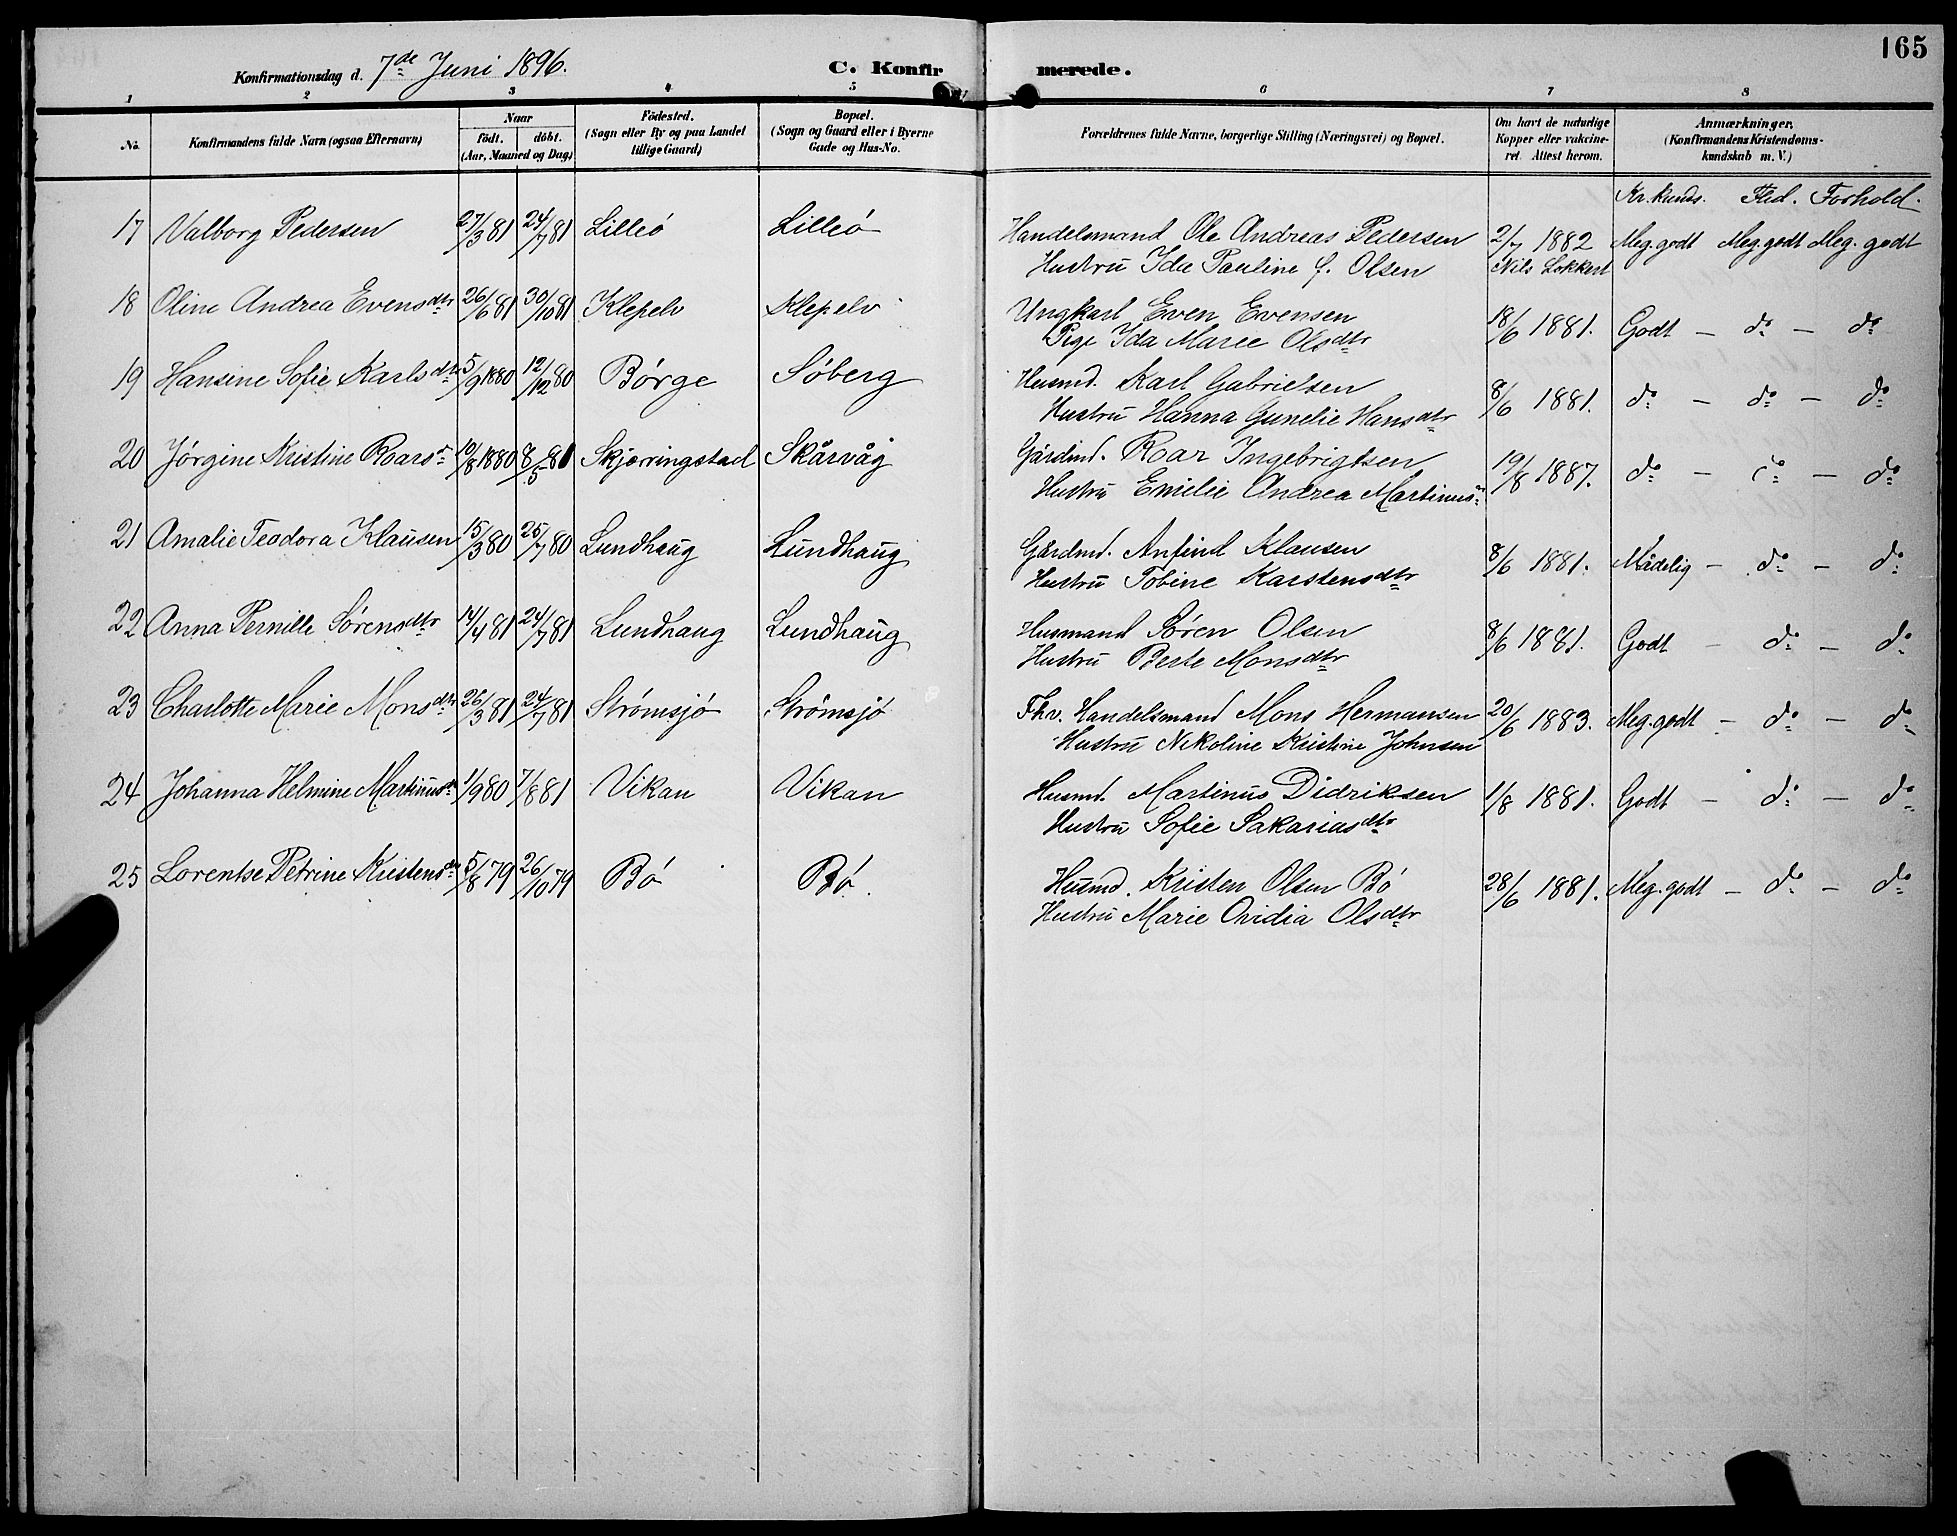 165
Konfirmationsdag d. 7de Juni 1896. C. Konfirmerede.
1 2 3 4 5 6 7 8
No. Konfirmandens fulde Navn (ogsaa Efternavn) Naar födt. döbt. (Aar, Maaned og Dag) Födested. (Sogn eller By og paa Landet tillige Gaard) Bopæl. (Sogn og Gaard eller i Byerne Gade og Hus-No. Forældrenes fulde Navne, borgerlige Stilling (Næringsvei) og Bopæl. Om havt de naturlige Kopper eller vakcineret. Attest herom. Anmærkninger. (Konfirmandens Kristendomskundskab m. V.)
Kr. kunds. Flid. Forhold.
17 Valborg Pedersen 27/3 81 24/7 81 Lilleö Lilleö Handelsmand Ole Andreas Pedersen 2/7 1882 Meg. godt Meg. godt Meg. godt
Hustru Ida Pauline f. Olsen Nils Lokkert
18 Oline Andrea Evensdtr 26/6 81 30/10 81 Klepelv Klepelv Ungkarl Even Evensen 18/6 1881. Godt – do – do
Pige Ida Maree Olsdtr
19 Hansine Sofie Karlsdtr 5/9 1880 12/12 80 Börge Söberg Husmd. Karl Gabrielsen 8/6 1881. do – do – do
Hustru Hanna Gunelie Hansdtr
20 Jörgine Kristine Roarsd 10/8 1880 8/5 81 Skjærringstad Skårvåg Gårdmd. Roar Ingebrigtsen 19/8 1887. do – do – do
Hustru Emelie Andrea Martinusd
21 Amalie Teodora Klausen 15/3 80 25/7 80 Lundhaug Lundhaug Gårdmd. Anfind Klausen 8/6 1881. Mådelig – do – do
Hustru Tobine Karstensdtr
22 Anna Pernille Sörensdtr 14/4 81 24/7 81 Lundhaug Lundhaug Husmand Sören Olsen 8/6 1881. Godt – do – do
Hustru Berte Monsdtr
23 Charlotte Marie Monsdtr 26/3 81 24/7 81 Strömsjö Strömsjö Fhv. Handelsmand Mons Hermansen 20/6 1883. Meg. godt – do – do
Hustru Nikoline Kristine Johnsen
24 Johanna Helmine Martinusd 1/9 80 7/8 81 Vikan Vikan Husmd. Martinus Didriksen 1/8 1881. Godt – do – do
Hustru Sofie Sakariasdtr
25 Lorentse Petrine Kristensdtr 5/8 79 26/10 79 Bö Bö. Husmd. Kristen Olsen Bö 28/6 1881. Meg. godt – do – do
Hustru Marie Ovidia Olsdtr